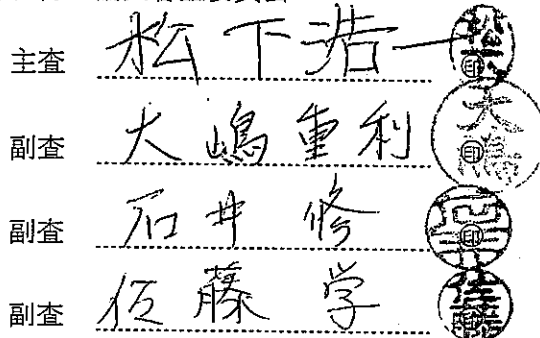 主査 松下浩一 印
副査 大嶋重利 印
副査 石井修 印
副査 佐藤学 印